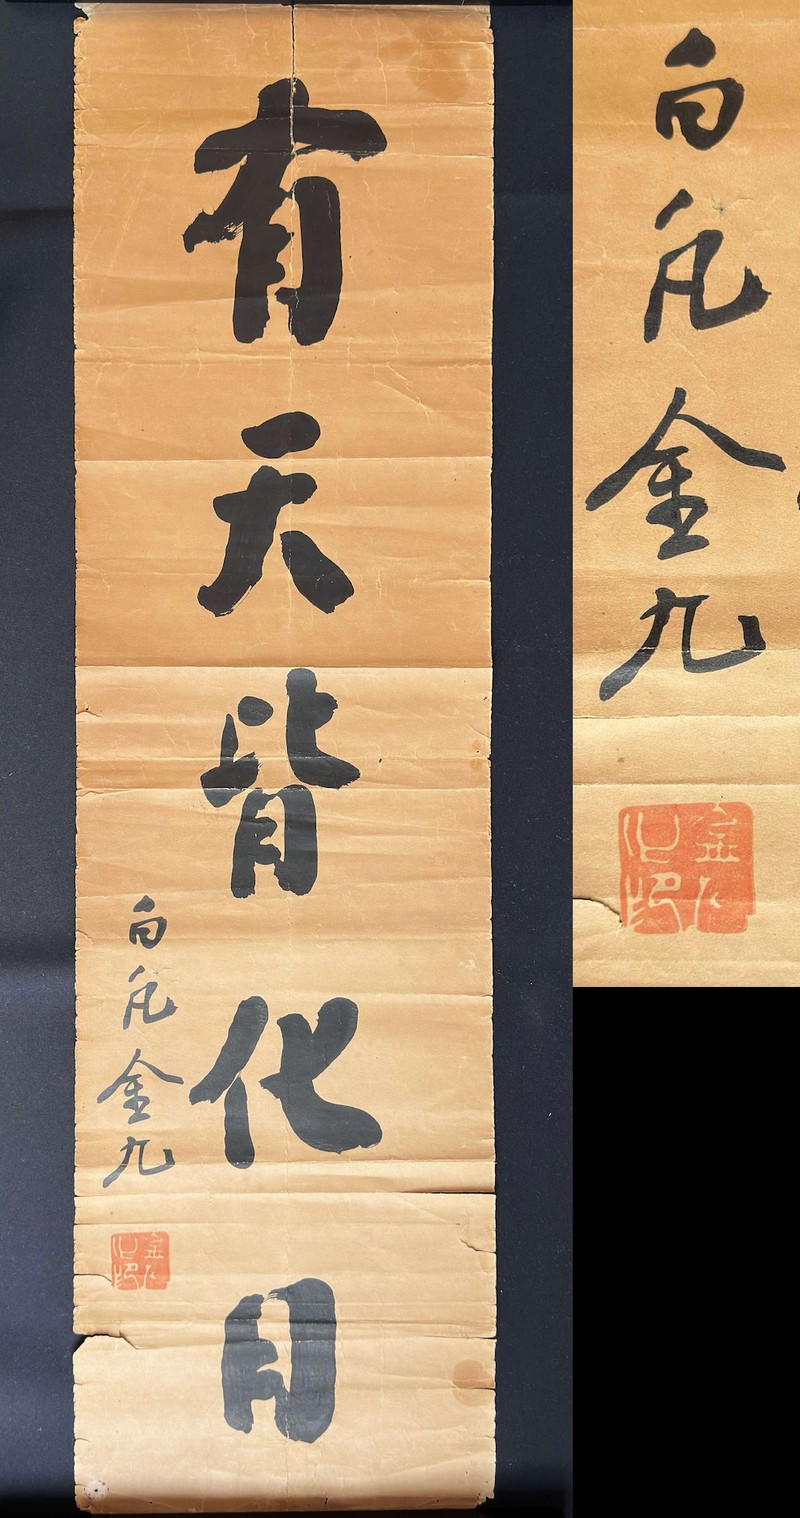 有天皆化日
白凡金九
金九之印
白凡金九
金九之印